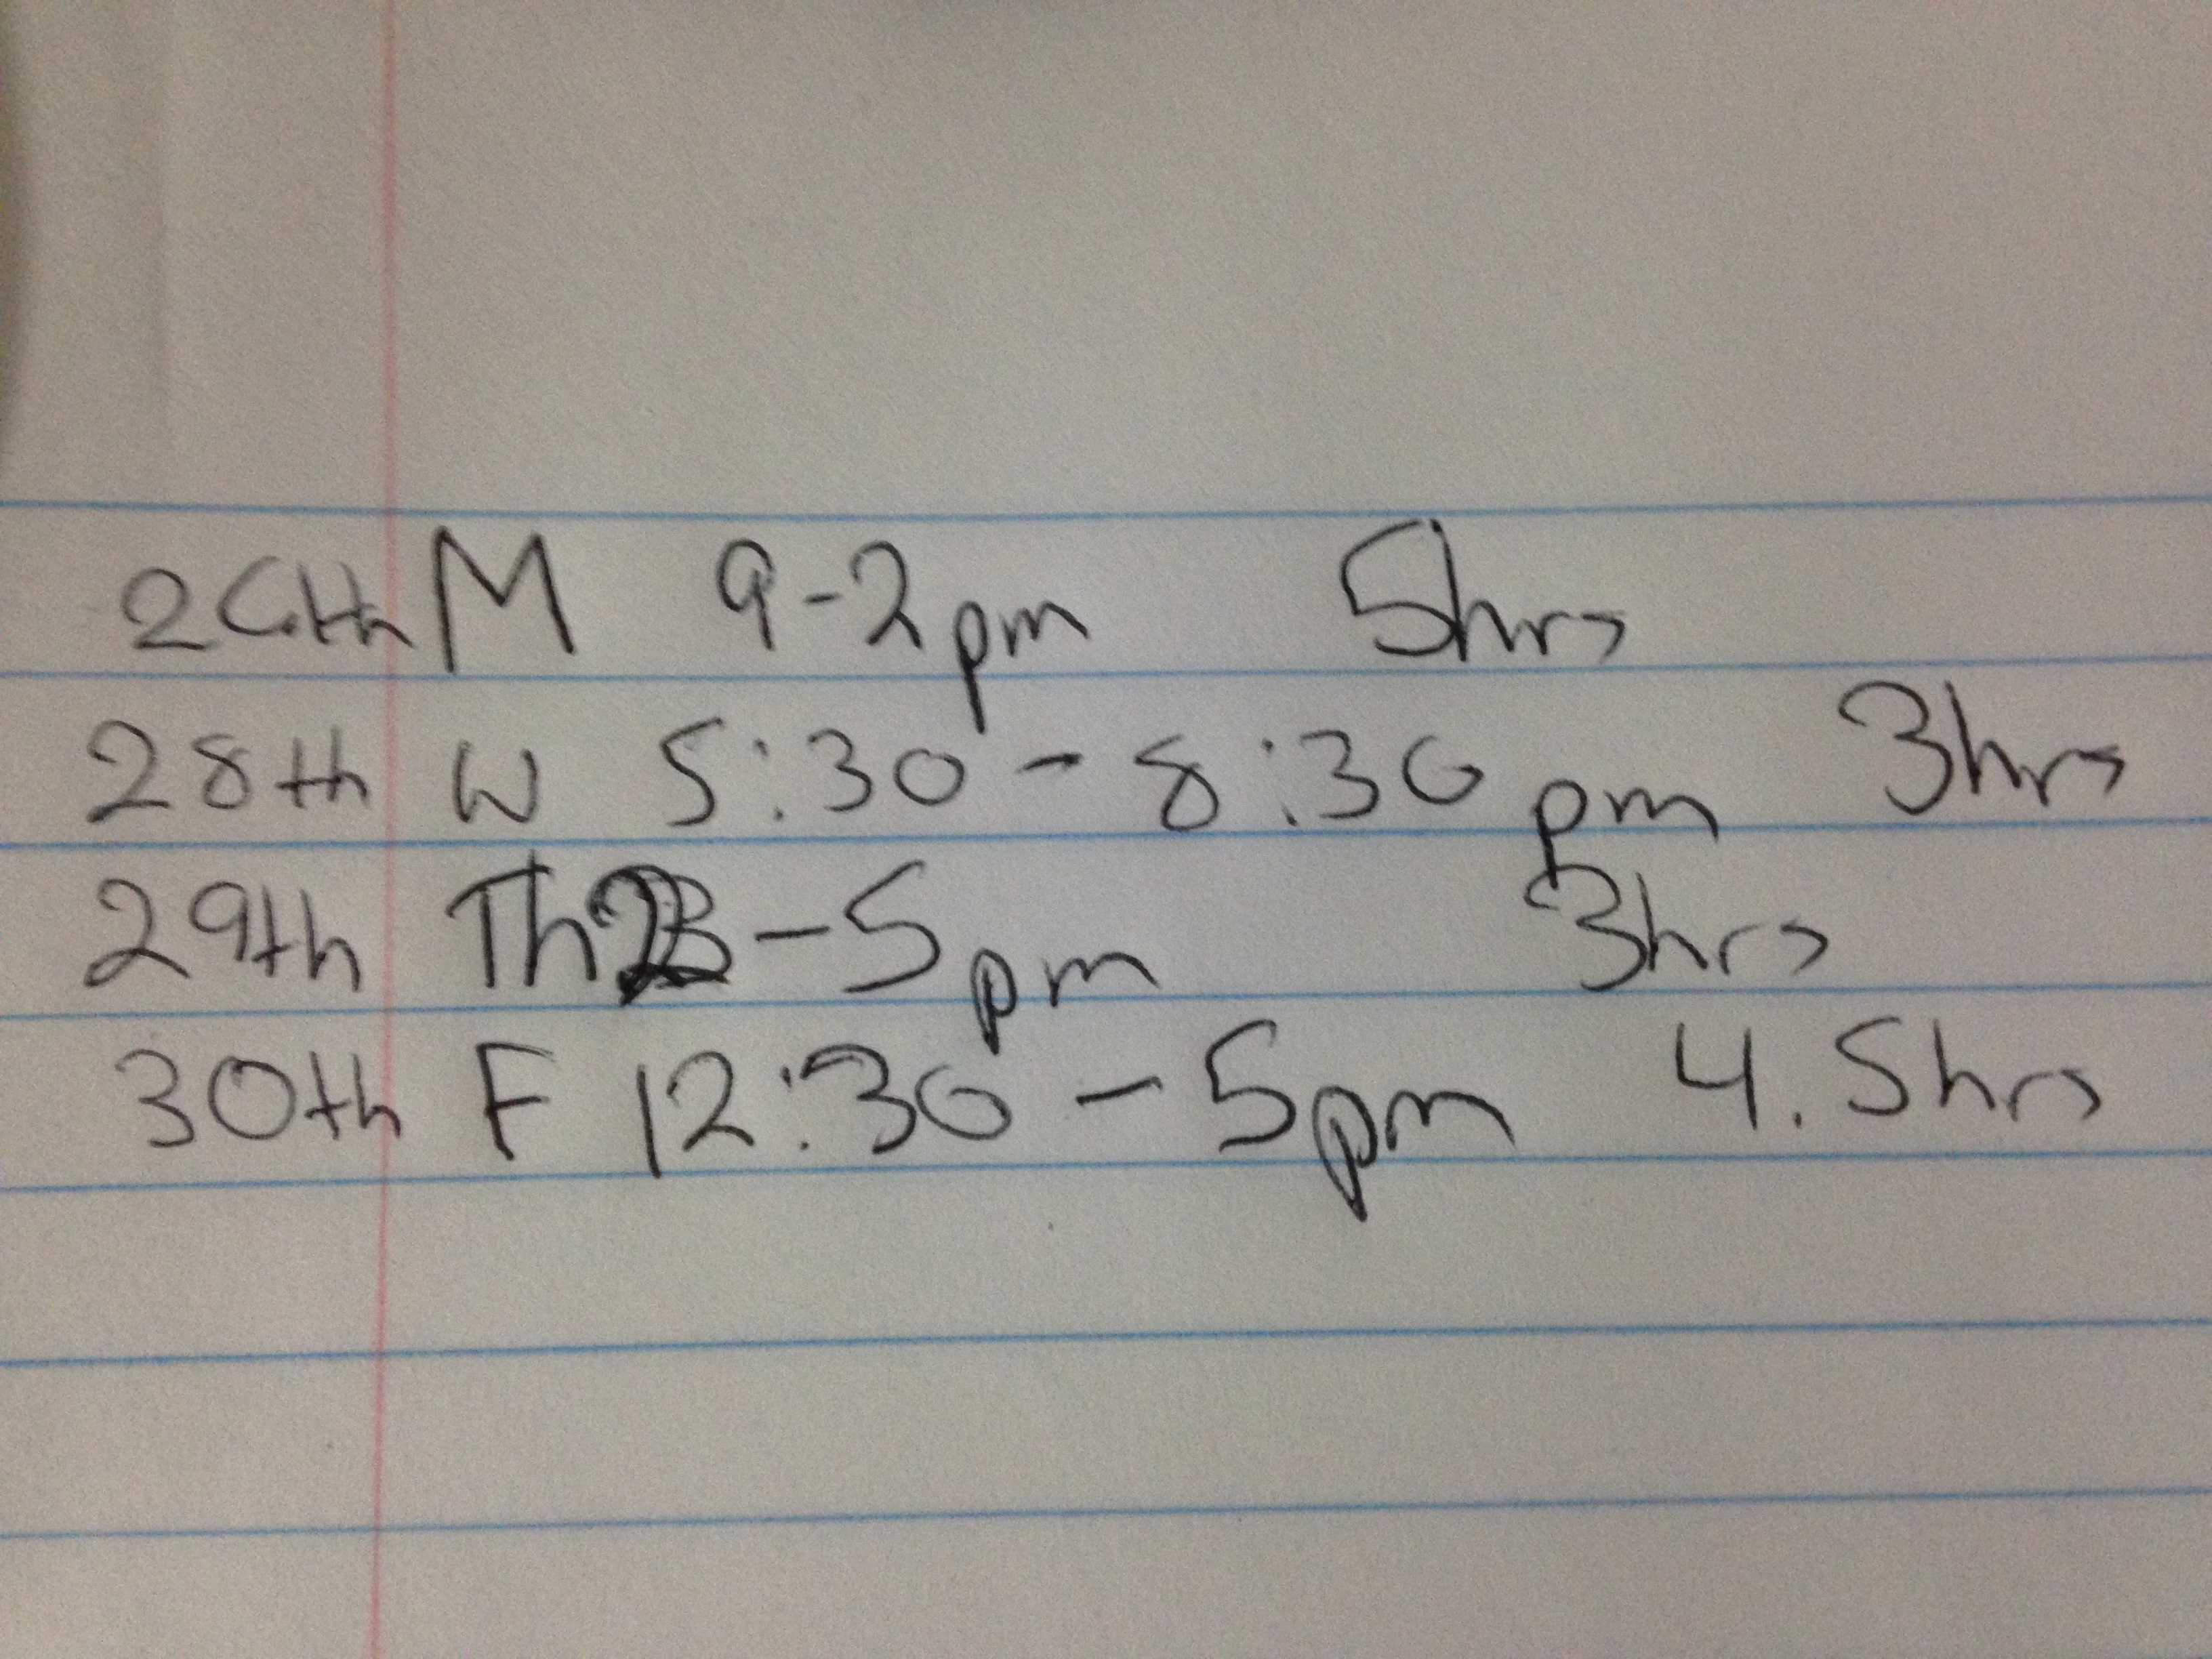 26th M 9-2pm 5hrs
28th W 5:30 - 8:30 pm 3hrs
29th Th 2 - 5pm 3hrs
30th F 12:30 - 5pm 4.5hrs